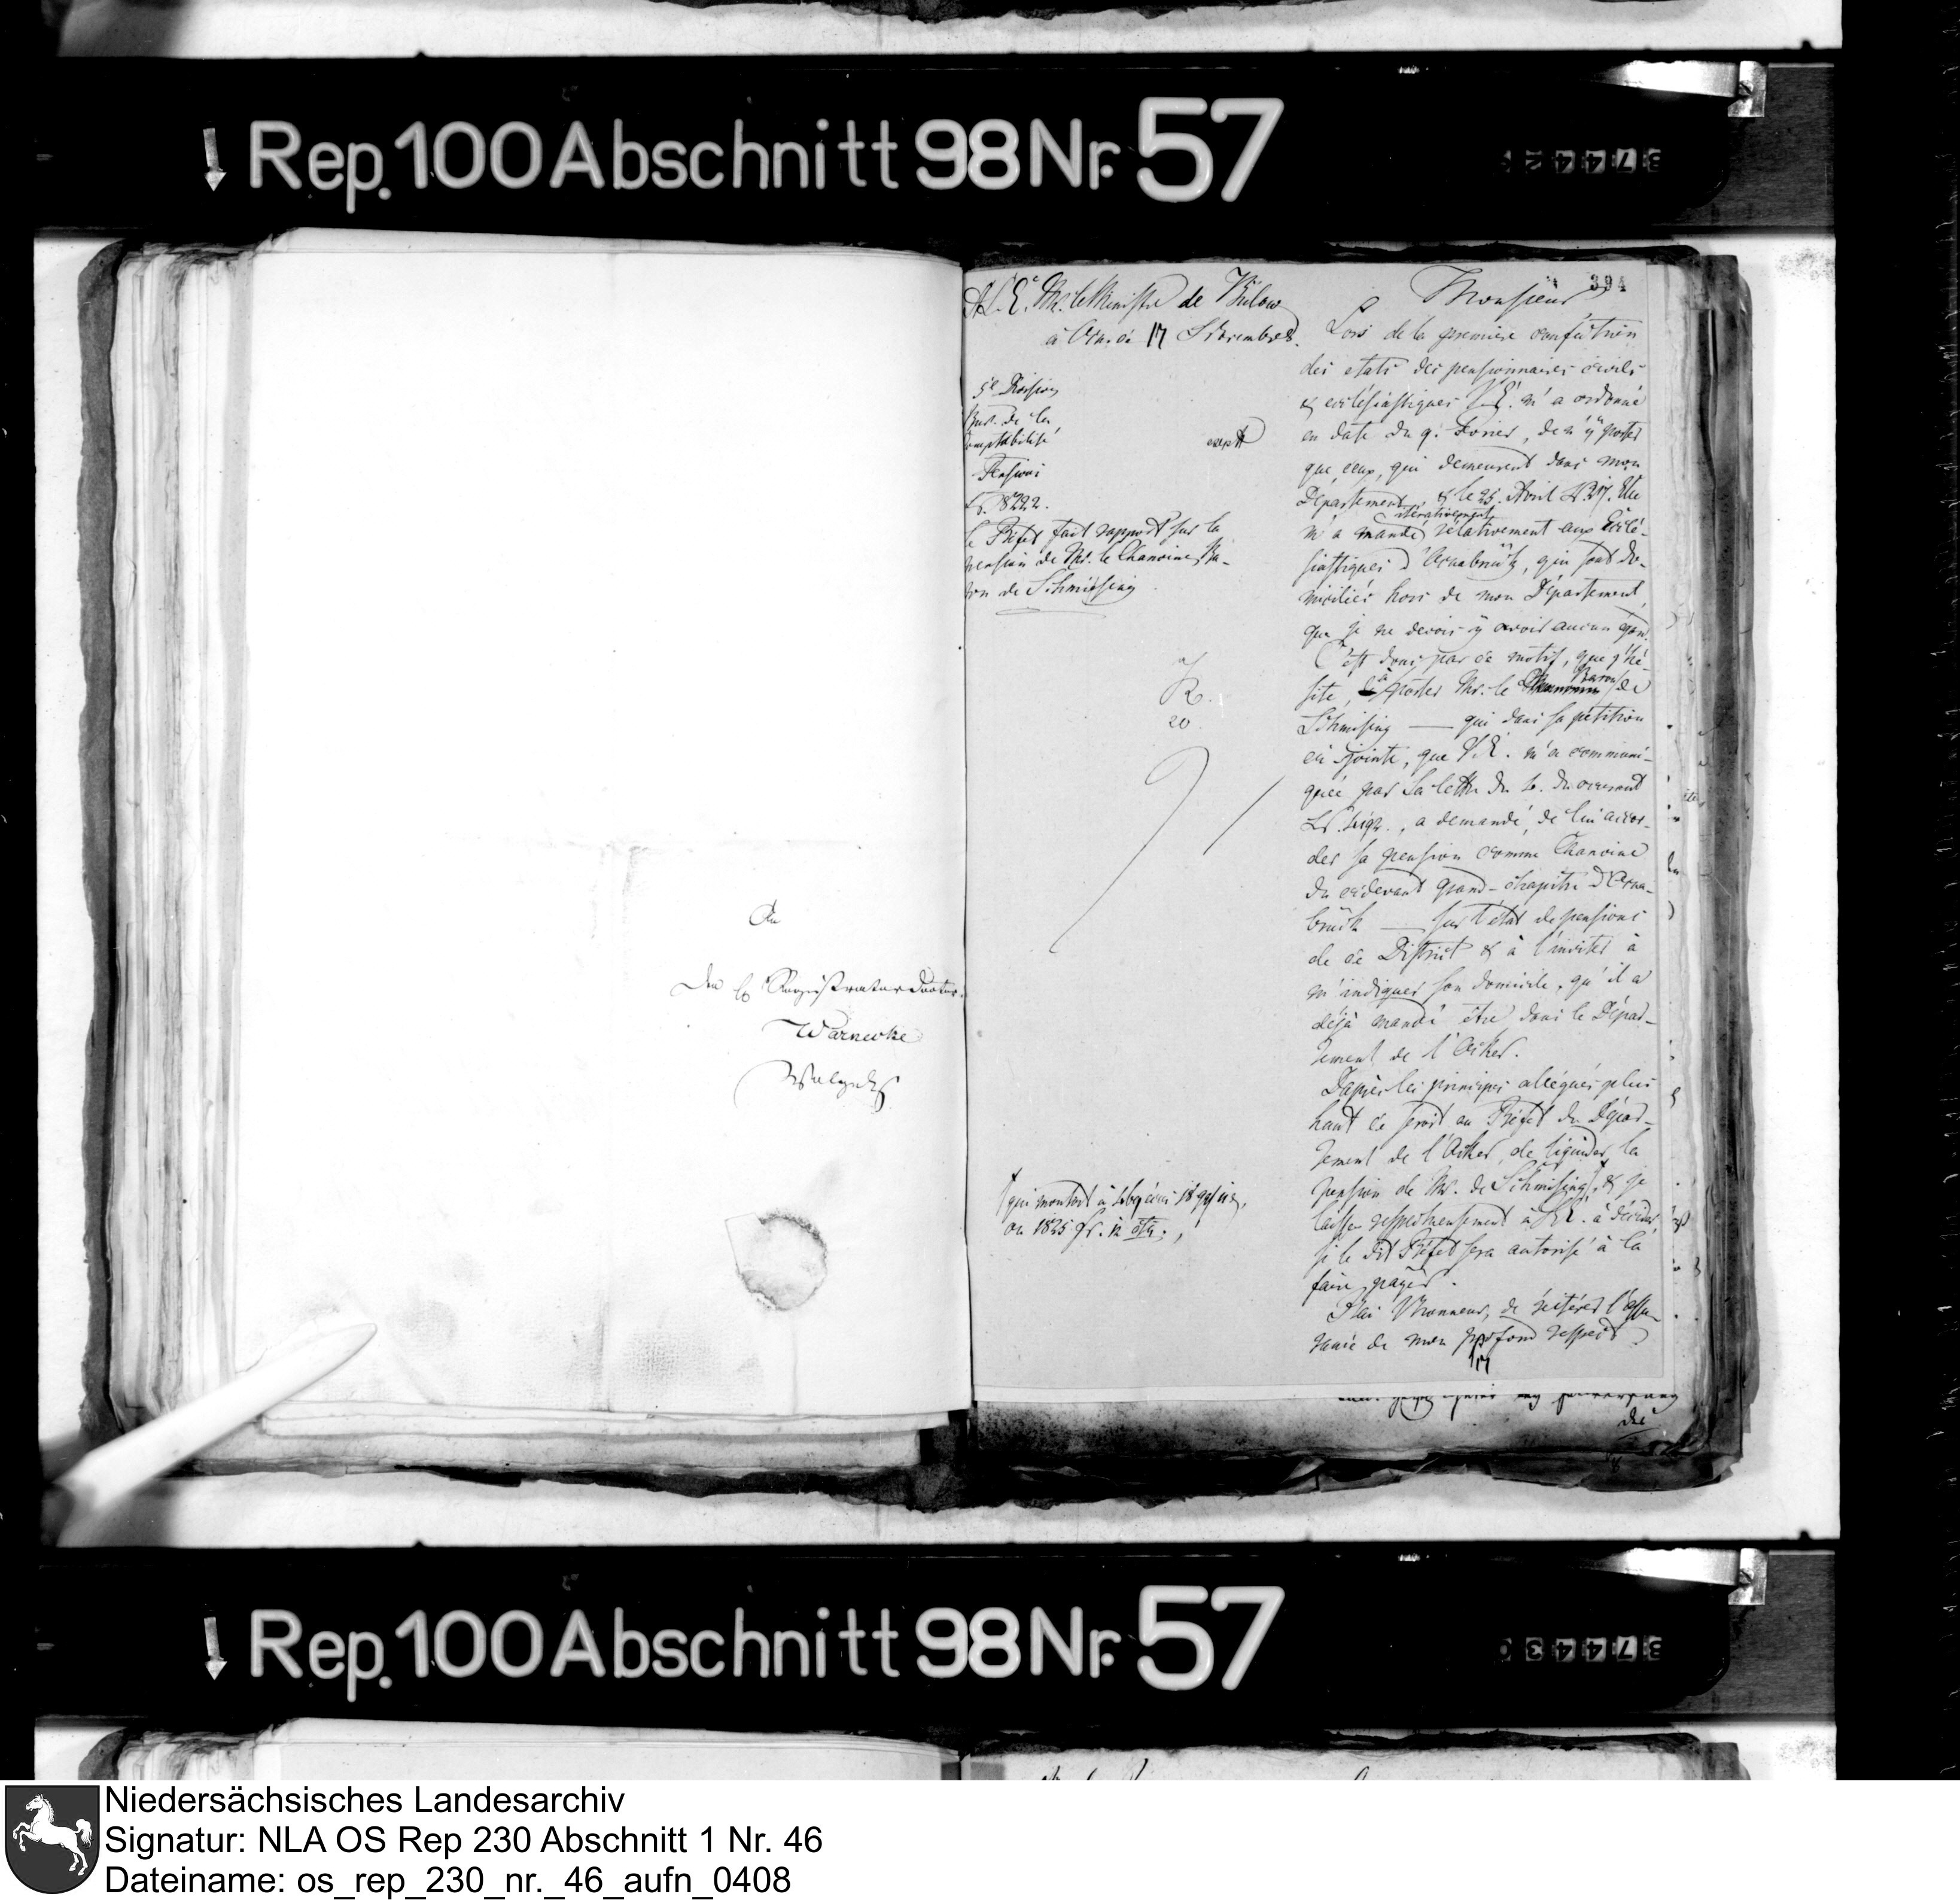 Rep. 100 Abschnitt 98 Nr. 57
An
Den
Registrator Doctor
Warnecke
394
A S. E. Mr. le Ministre de Bülow
à Osn. ce 17 Novembre
5e Division
Bur. de la
Comptabilité
Pensions
No. 8222.
le Préfet fait rapport sur la
pension de Mr. le Chanoine Ba-
ron de Schmising
20
qui montent à
ou 1825 fr.
Monsieur
Lors de la première confection
des etats des pensionnaires civils
& ecclésiastiques V.E. m'a ordonné
en date du 9. Fevrier, de n'y porter
que ceux, qui demeurent dans mon
Département, & le 25. Avril
itérativement
m'a mandé rélativement aux Ecclé-
siastiques d'Osnabrück, qui sont do-
miciliés hors de mon Département,
que je ne devois y avoir aucun
C'est donc par ce motif, que j'hé-
site, à porter Mr. le Baron de
Schmising — qui dans sa pétition
ci jointe, que V.E. m'a communi-
quée par Sa lettre du courant
a demandé, de lui accor-
der sa pension comme Chanoine
du cidevant Grand-chapitre d'Osna-
brück — sur l'état de pensions
de ce District & à l'inviter à
m'indiquer son domicile, qu'il a
déjà mandé être dans le Dépar-
tement de l'Ocker.
Dapres les principes allégués plus
haut ce seroit au Préfet du Dépar-
tement de l'Ocker, de liquider la
pension de Mr. de Schmising, & je
laisse respectueusement à V.E. à décider,
si le dit Préfet sera autorisé à la
faire payer.
J'ai l'honneur, de réitérer l'assu-
rance de mon profond respect
die
Rep. 100 Abschnitt 98 Nr. 57
Niedersächsisches Landesarchiv
Signatur: NLA OS Rep 230 Abschnitt 1 Nr. 46
Dateiname: os_rep_230_nr._46_aufn_0408